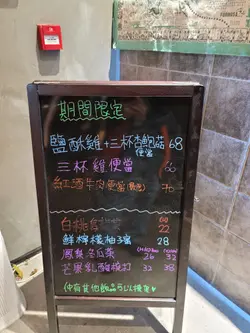 期間限定
鹽酥雞+三杯杏鮑菇 68
便當
三杯雞便當 60
紅酒牛肉便當 70
白桃 22
鮮檸檬柚子蜜 28
鳳梨冬瓜茶 26 32
芒果乳酸 32 38
(仲有其他飲品可以揀